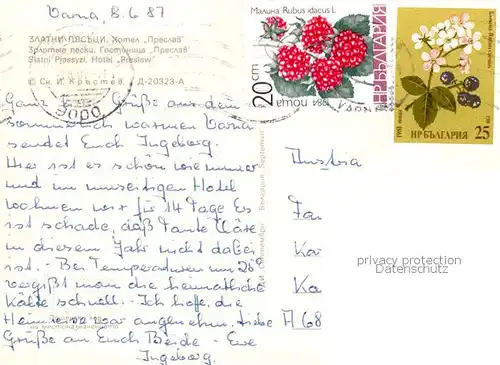 Varna, 8.6.87
ЗЛАТНИ ПЯСЪЦИ. Хотел „Преслав"
Золотые пески. Гостиница „Преслав"
Slatni Pjassyzi. Hotel „Preslew"
© Св. И. Кръстев, Д-20323-А
9000
Ganz Grüße aus dem
sommerlich warmen Varna
sendet Euch Ingeborg.
Hier ist es schön wie immer
und im Hotel
wohnen wir für 14 Tage. Es
ist schade, daß Tante Käte
in diesem Jahr nicht dabei
ist. - Bei Temperaturen um 28°
vergißt man die heimatliche
Kälte schnell. - Ich hoffe, die
Heimreise war angenehm. Liebe
Grüße an Euch Beide - Eure
Ingeborg.
България
Малина Rubus idaeus L.
20 cm
НР БЪЛГАРИЯ
НР БЪЛГАРИЯ
1981
25 cm
Austria
Fam
Kar
Ka
A 68
privacy protection
Datenschutz